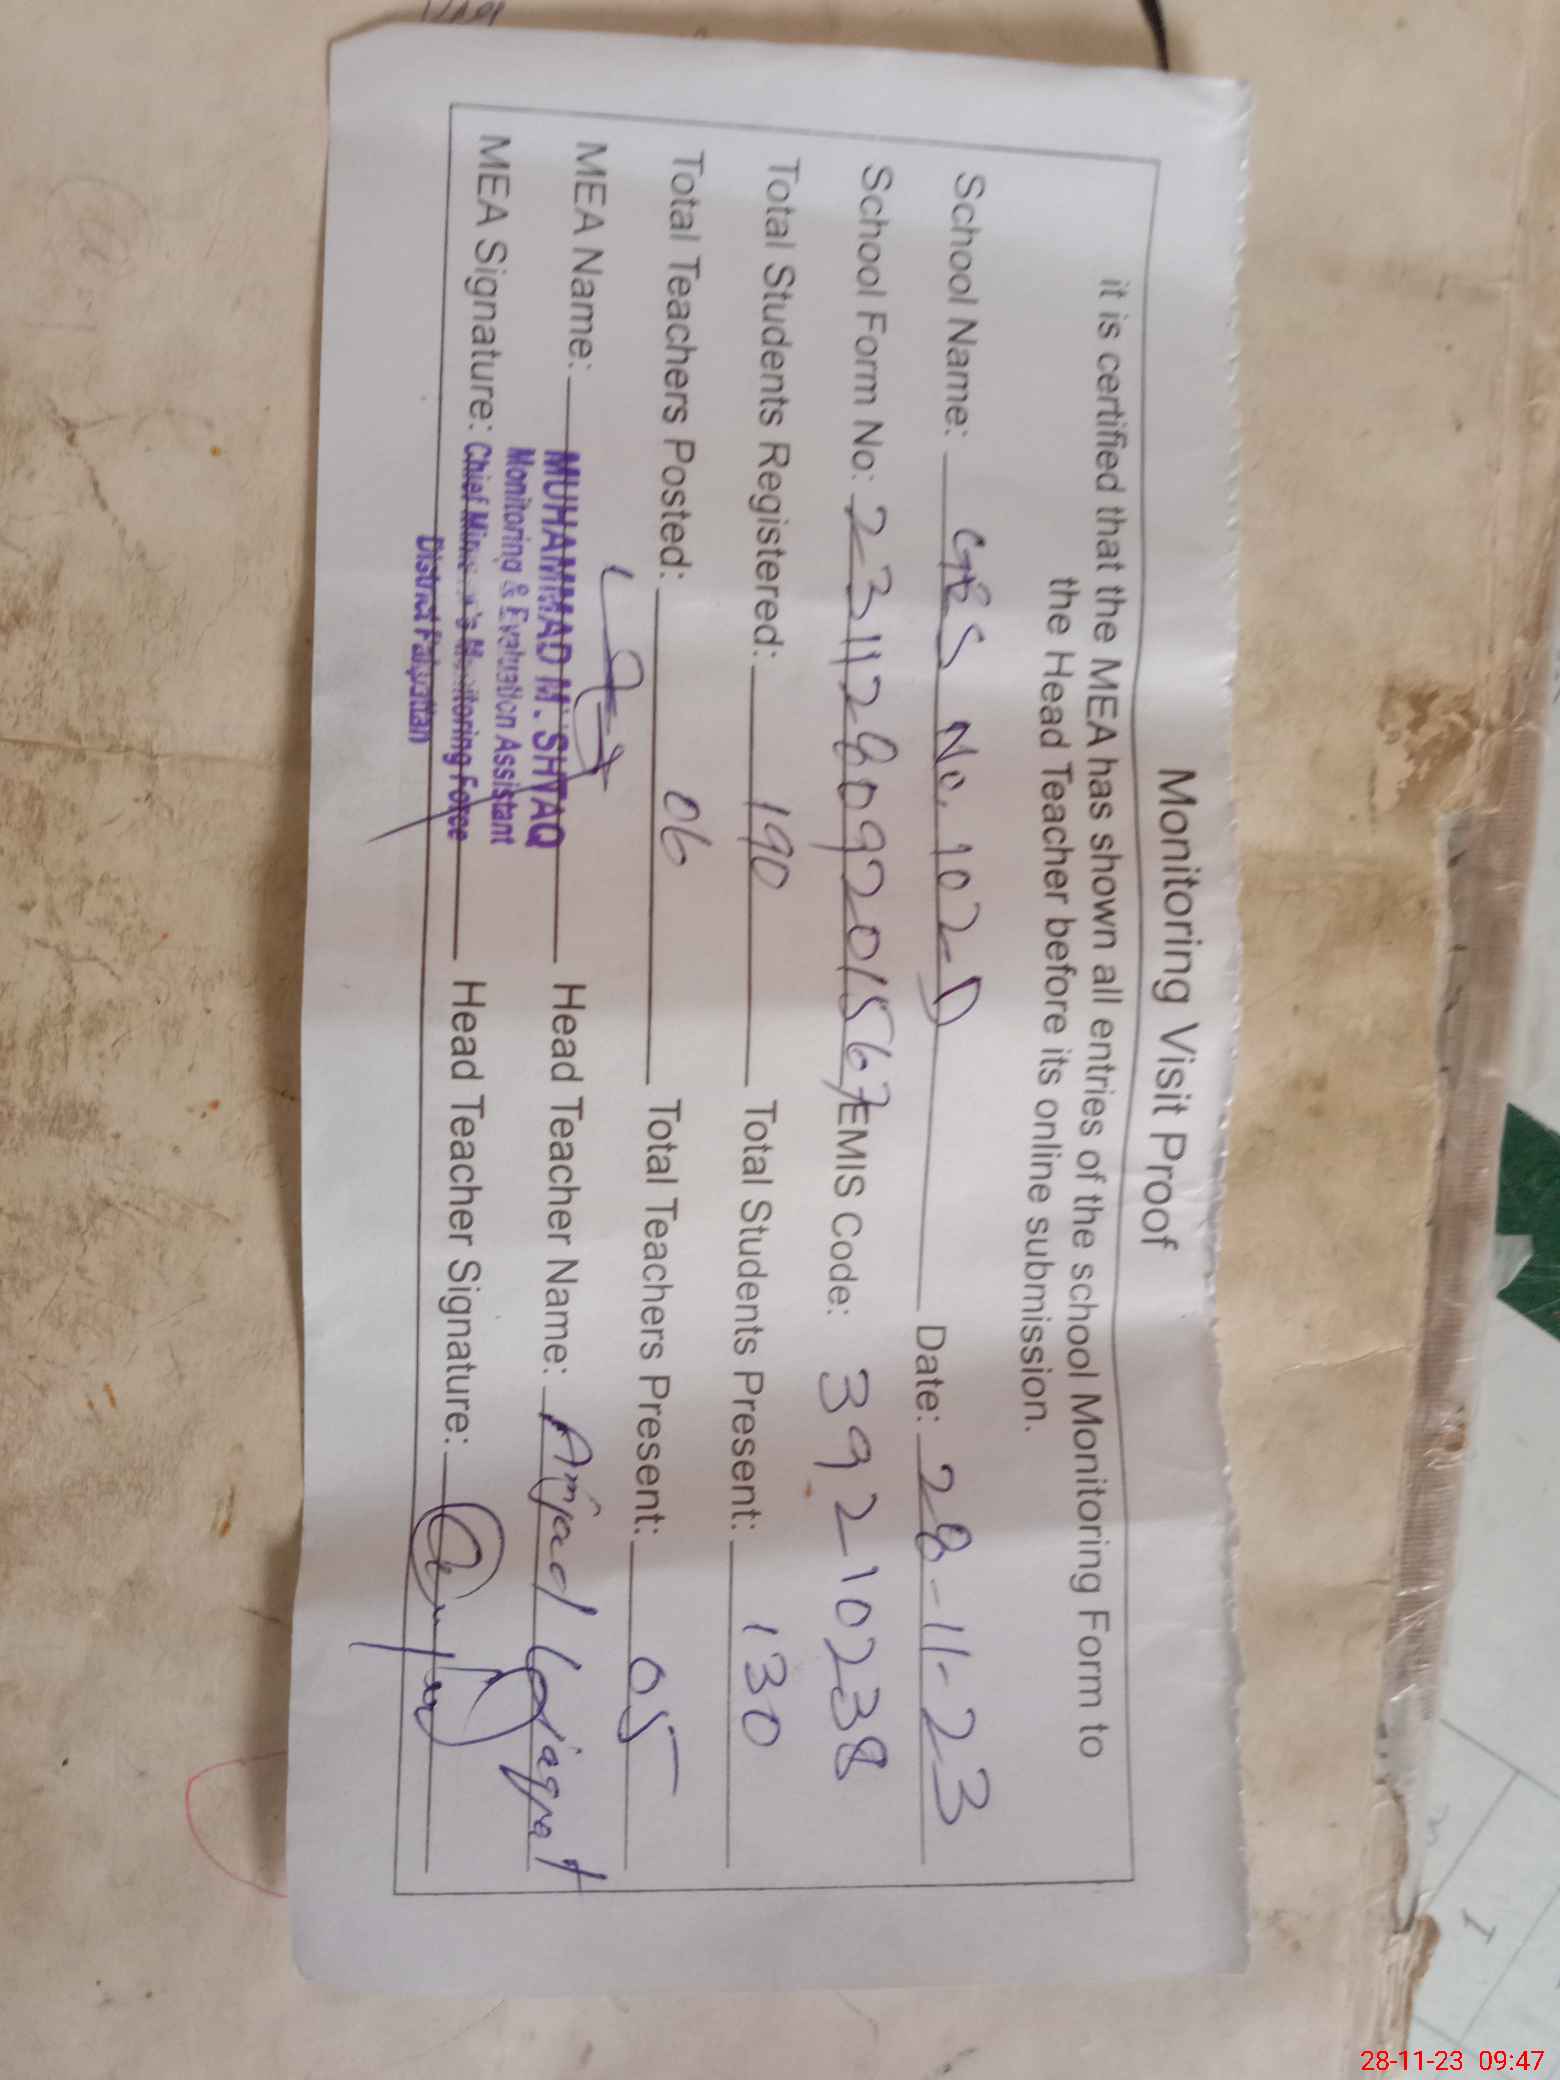 Monitoring Visit Proof
it is certified that the MEA has shown all entries of the school Monitoring Form to
the Head Teacher before its online submission.
School Name: GES No. 102-D Date: 28-11-23
School Form No: 23112809201567 EMIS Code: 39210238
Total Students Registered: 190 Total Students Present: 130
Total Teachers Posted: 06 Total Teachers Present: 05
MEA Name: MUHAMMAD MUSHTAQ Head Teacher Name: Amjad Liaqat
Monitoring & Evaluation Assistant
MEA Signature: Chief Minister's Monitoring Force Head Teacher Signature:
District Pakpattan
28-11-23 09:47